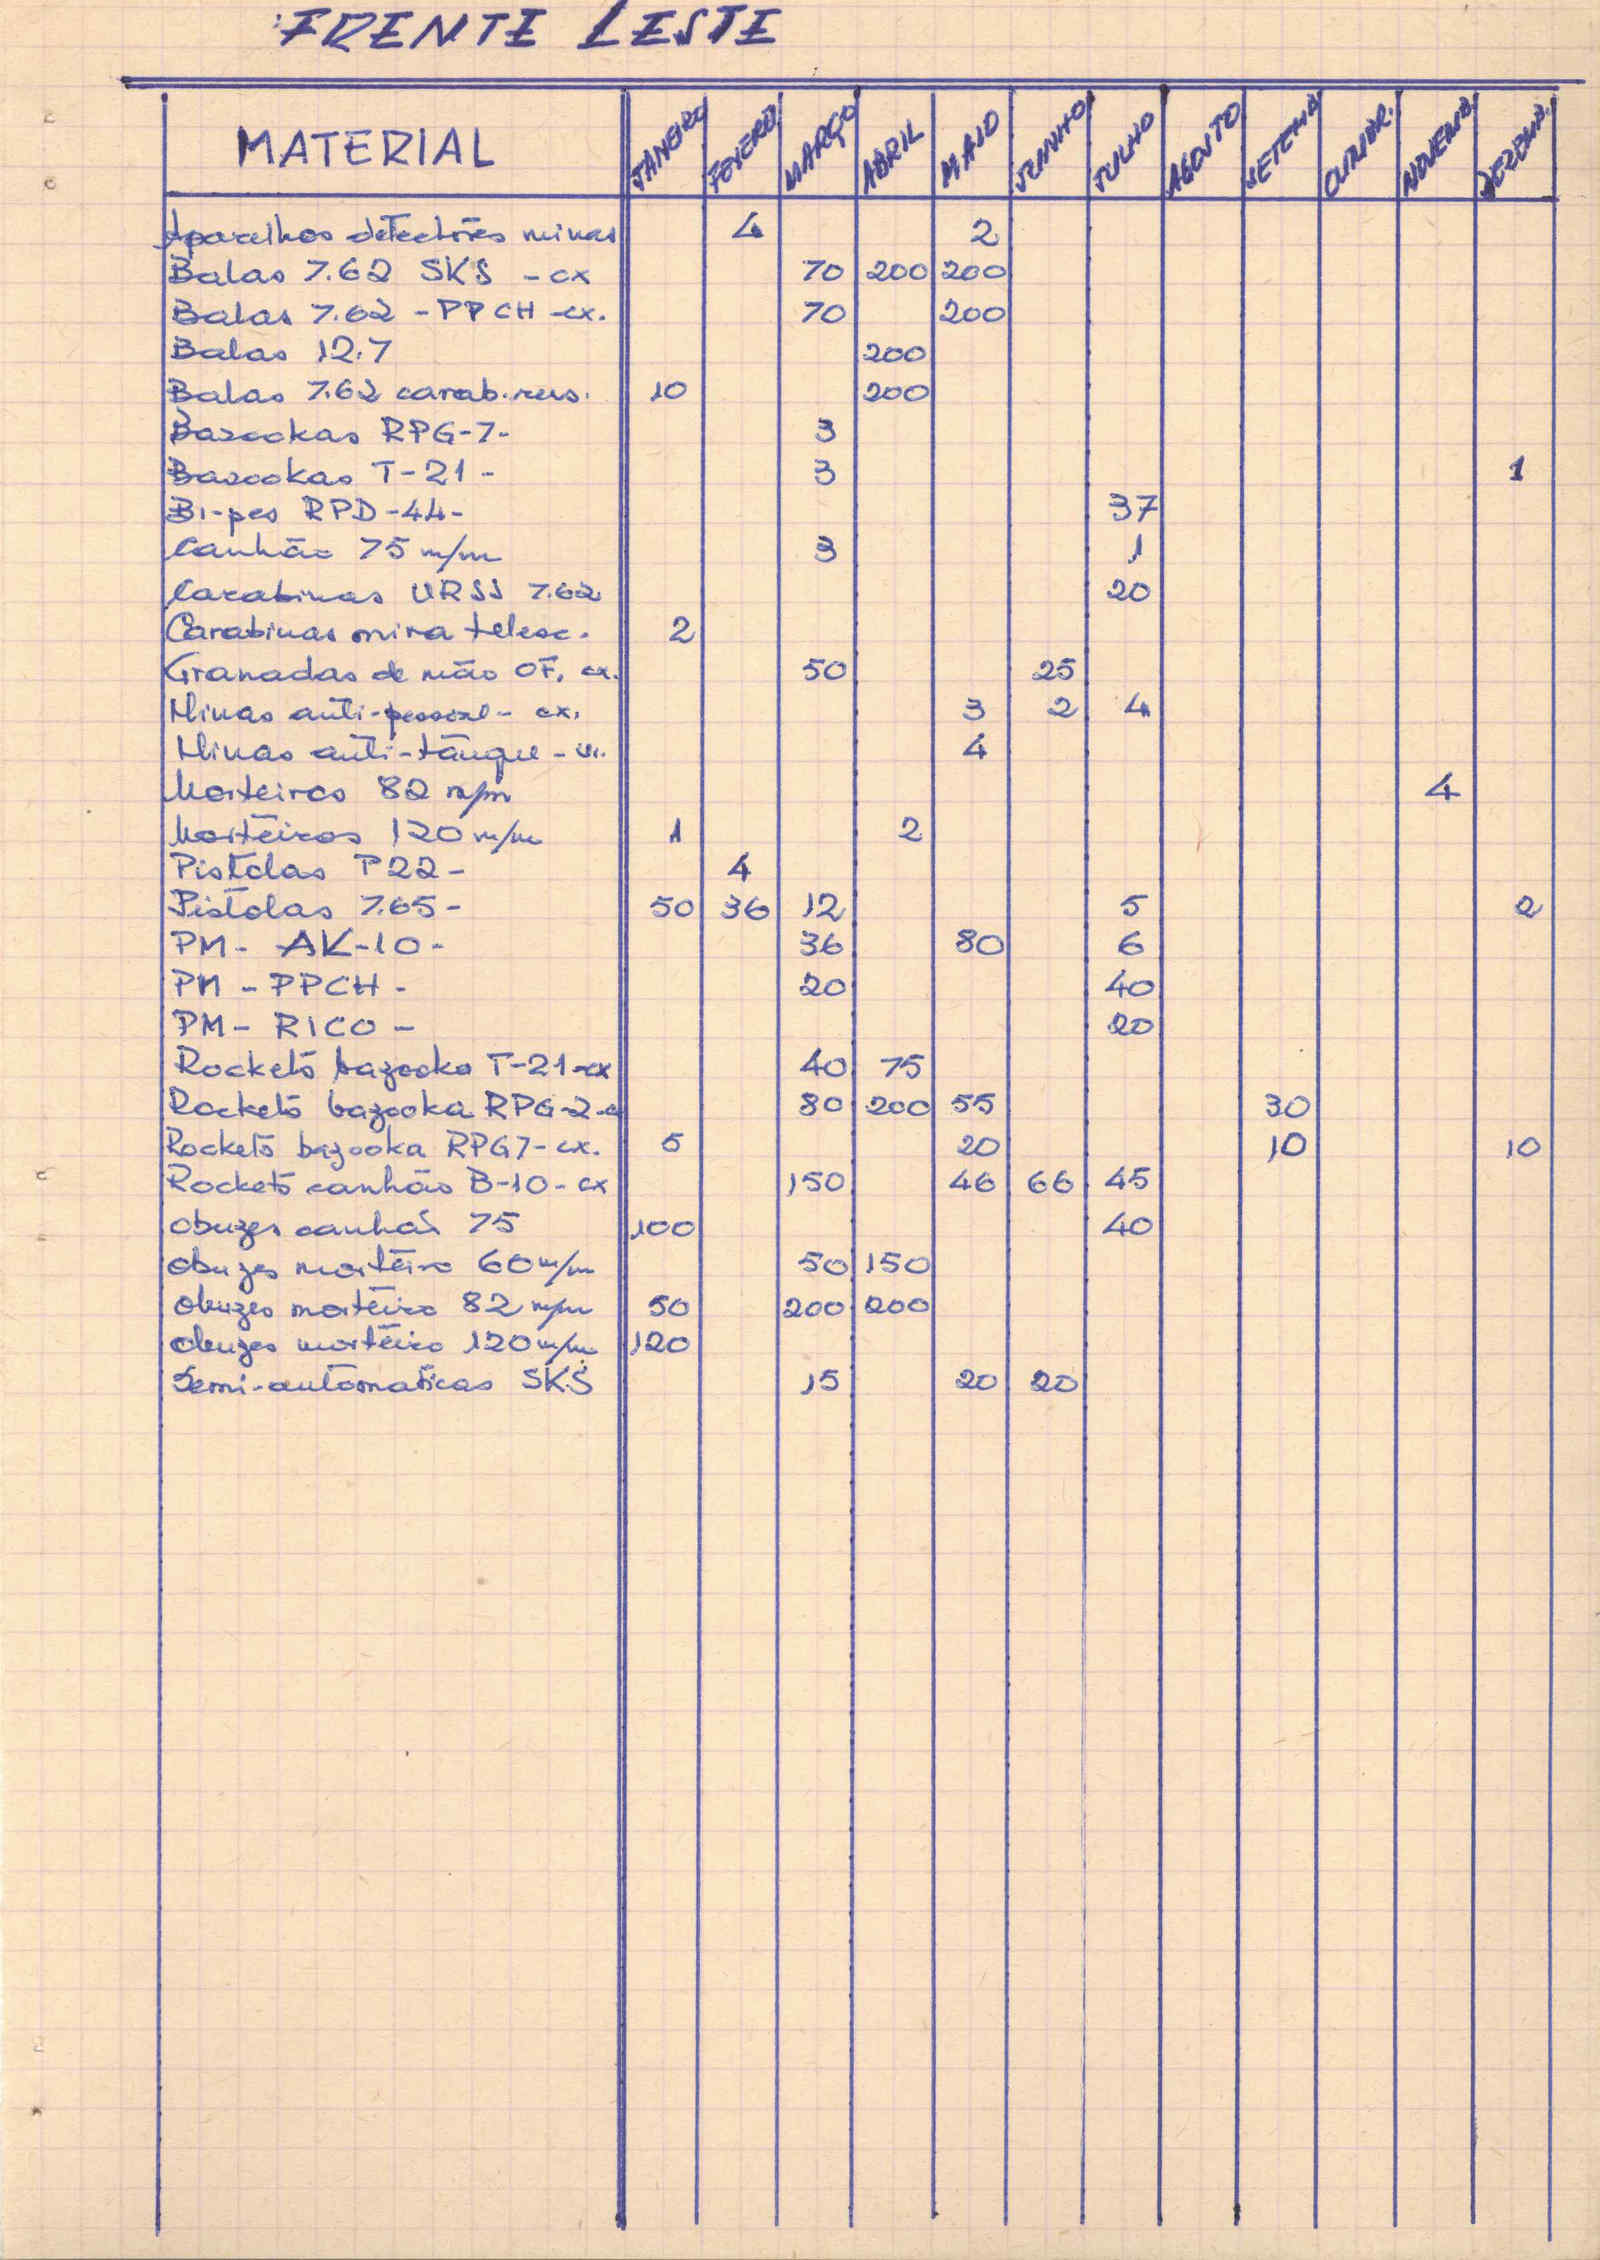 FRENTE LESTE
MATERIAL JANEIRO FEVERO MARÇO ABRIL MAIO JUNHO JULHO AGOSTO SETEMB OUTUBR. NOVEMB DEZEMB.
Aparelhos detectores minas 4 2
Balas 7.62 SKS - cx 70 200 200
Balas 7.62 - PPCH - cx. 70 200
Balas 12.7 200
Balas 7.62 carab. rus. 10 200
Bazookas RPG-7- 3
Bazookas T-21- 3 1
Bi-pes RPD-44- 37
Canhão 75 m/m 3 1
Carabinas URSS 7.62 20
Carabinas mira telesc. 2
Granadas de mão OF. cx. 50 25
Minas anti-pessoal - cx. 3 2 4
Minas anti-tânque - 4
Morteiros 82 m/m 4
Morteiros 120 m/m 1 2
Pistolas P22- 4
Pistolas 7.65- 50 36 12 5 2
PM- AK-10- 36 80 6
PM - PPCH - 20 40
PM - RICO - 20
Rockets bazooka T-21-cx 40 75
Rockets bazooka RPG-2-c 80 200 55 30
Rockets bazooka RPG7-cx. 5 20 10 10
Rockets canhão B-10-cx 150 46 66 45
Obuzes canhão 75 100 40
Obuzes morteiro 60 m/m 50 150
Obuzes morteiro 82 m/m 50 200 200
Obuzes morteiro 120 m/m 120
Semi-automaticas SKS 15 20 20